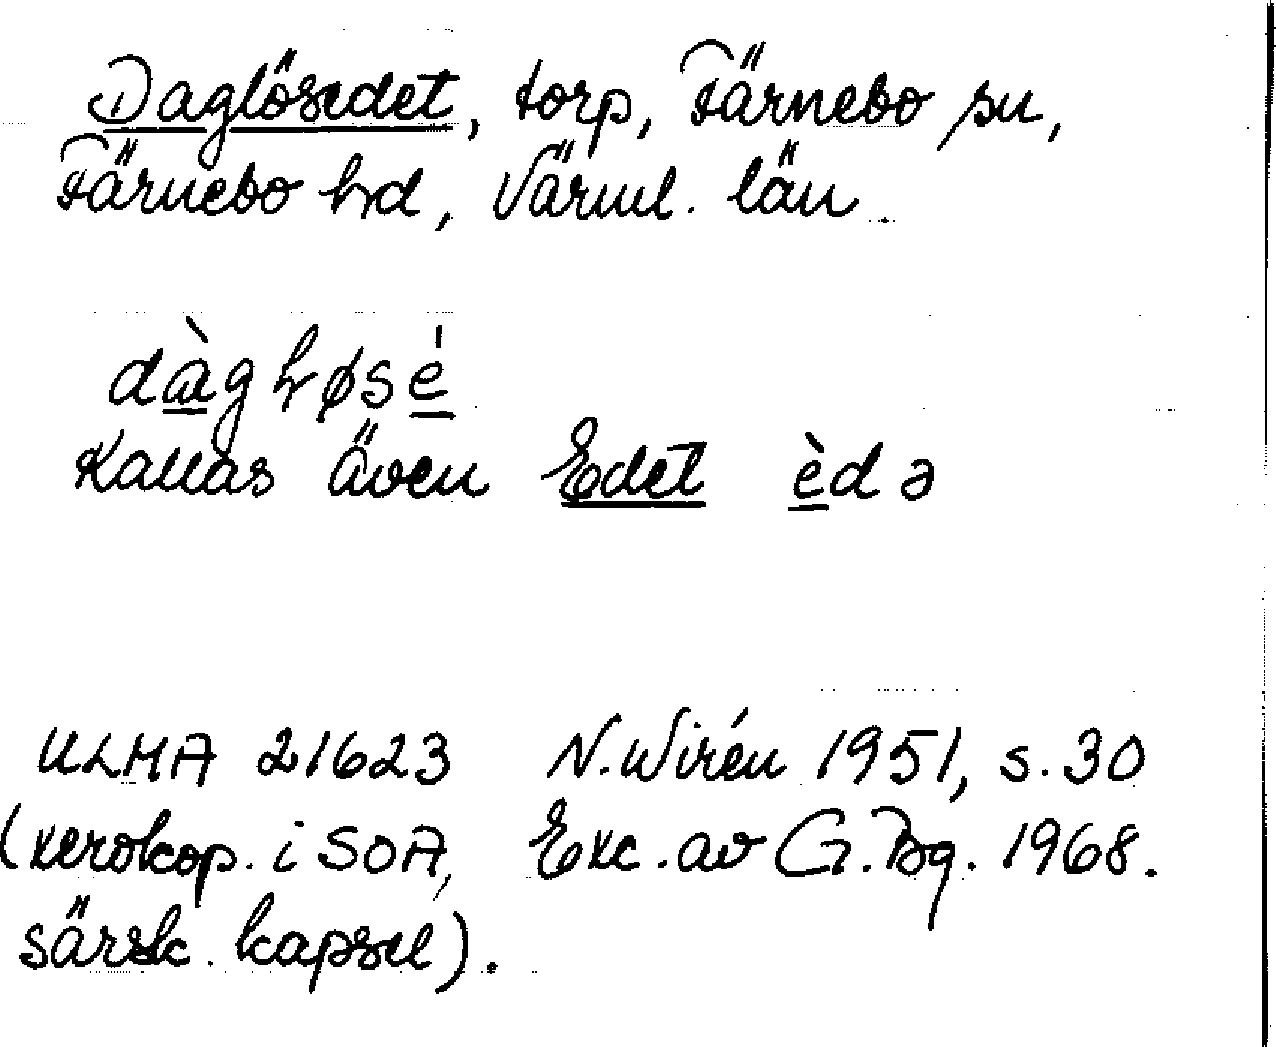 Daglösedet, torp, Färnebo sn,
Färnebo hd, Värml. län
dàgłøsé
Kallas även Edet èdə
ULMA 21623 N. Wirén 1951, s. 30
(xerokop. i SOA, Exc. av G. Bg. 1968.
särsk. kapsel).